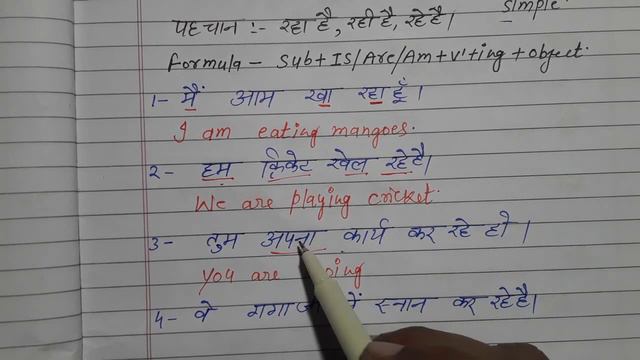 simple
पहचान :- रहा है, रही है, रहे है।
Formula - Sub + IS/Are/Am + V¹ + ing + object.
1- मैं आम खा रहा हूँ।
I am eating mangoes.
२- हम क्रिकेट खेल रहे है।
We are playing cricket.
3- तुम अपना कार्य कर रहे हो।
You are
4- वे में स्नान कर रहे है।